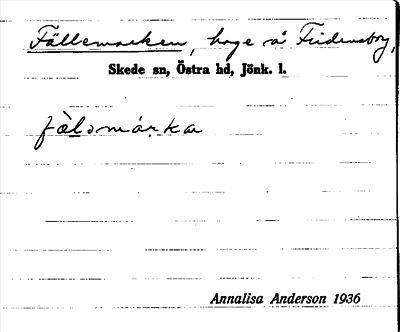 Fällemarken, hage å Fridensborg,
Skede sn, Östra hd, Jönk. l.
fὰlɔmάrka
Annalisa Anderson 1936